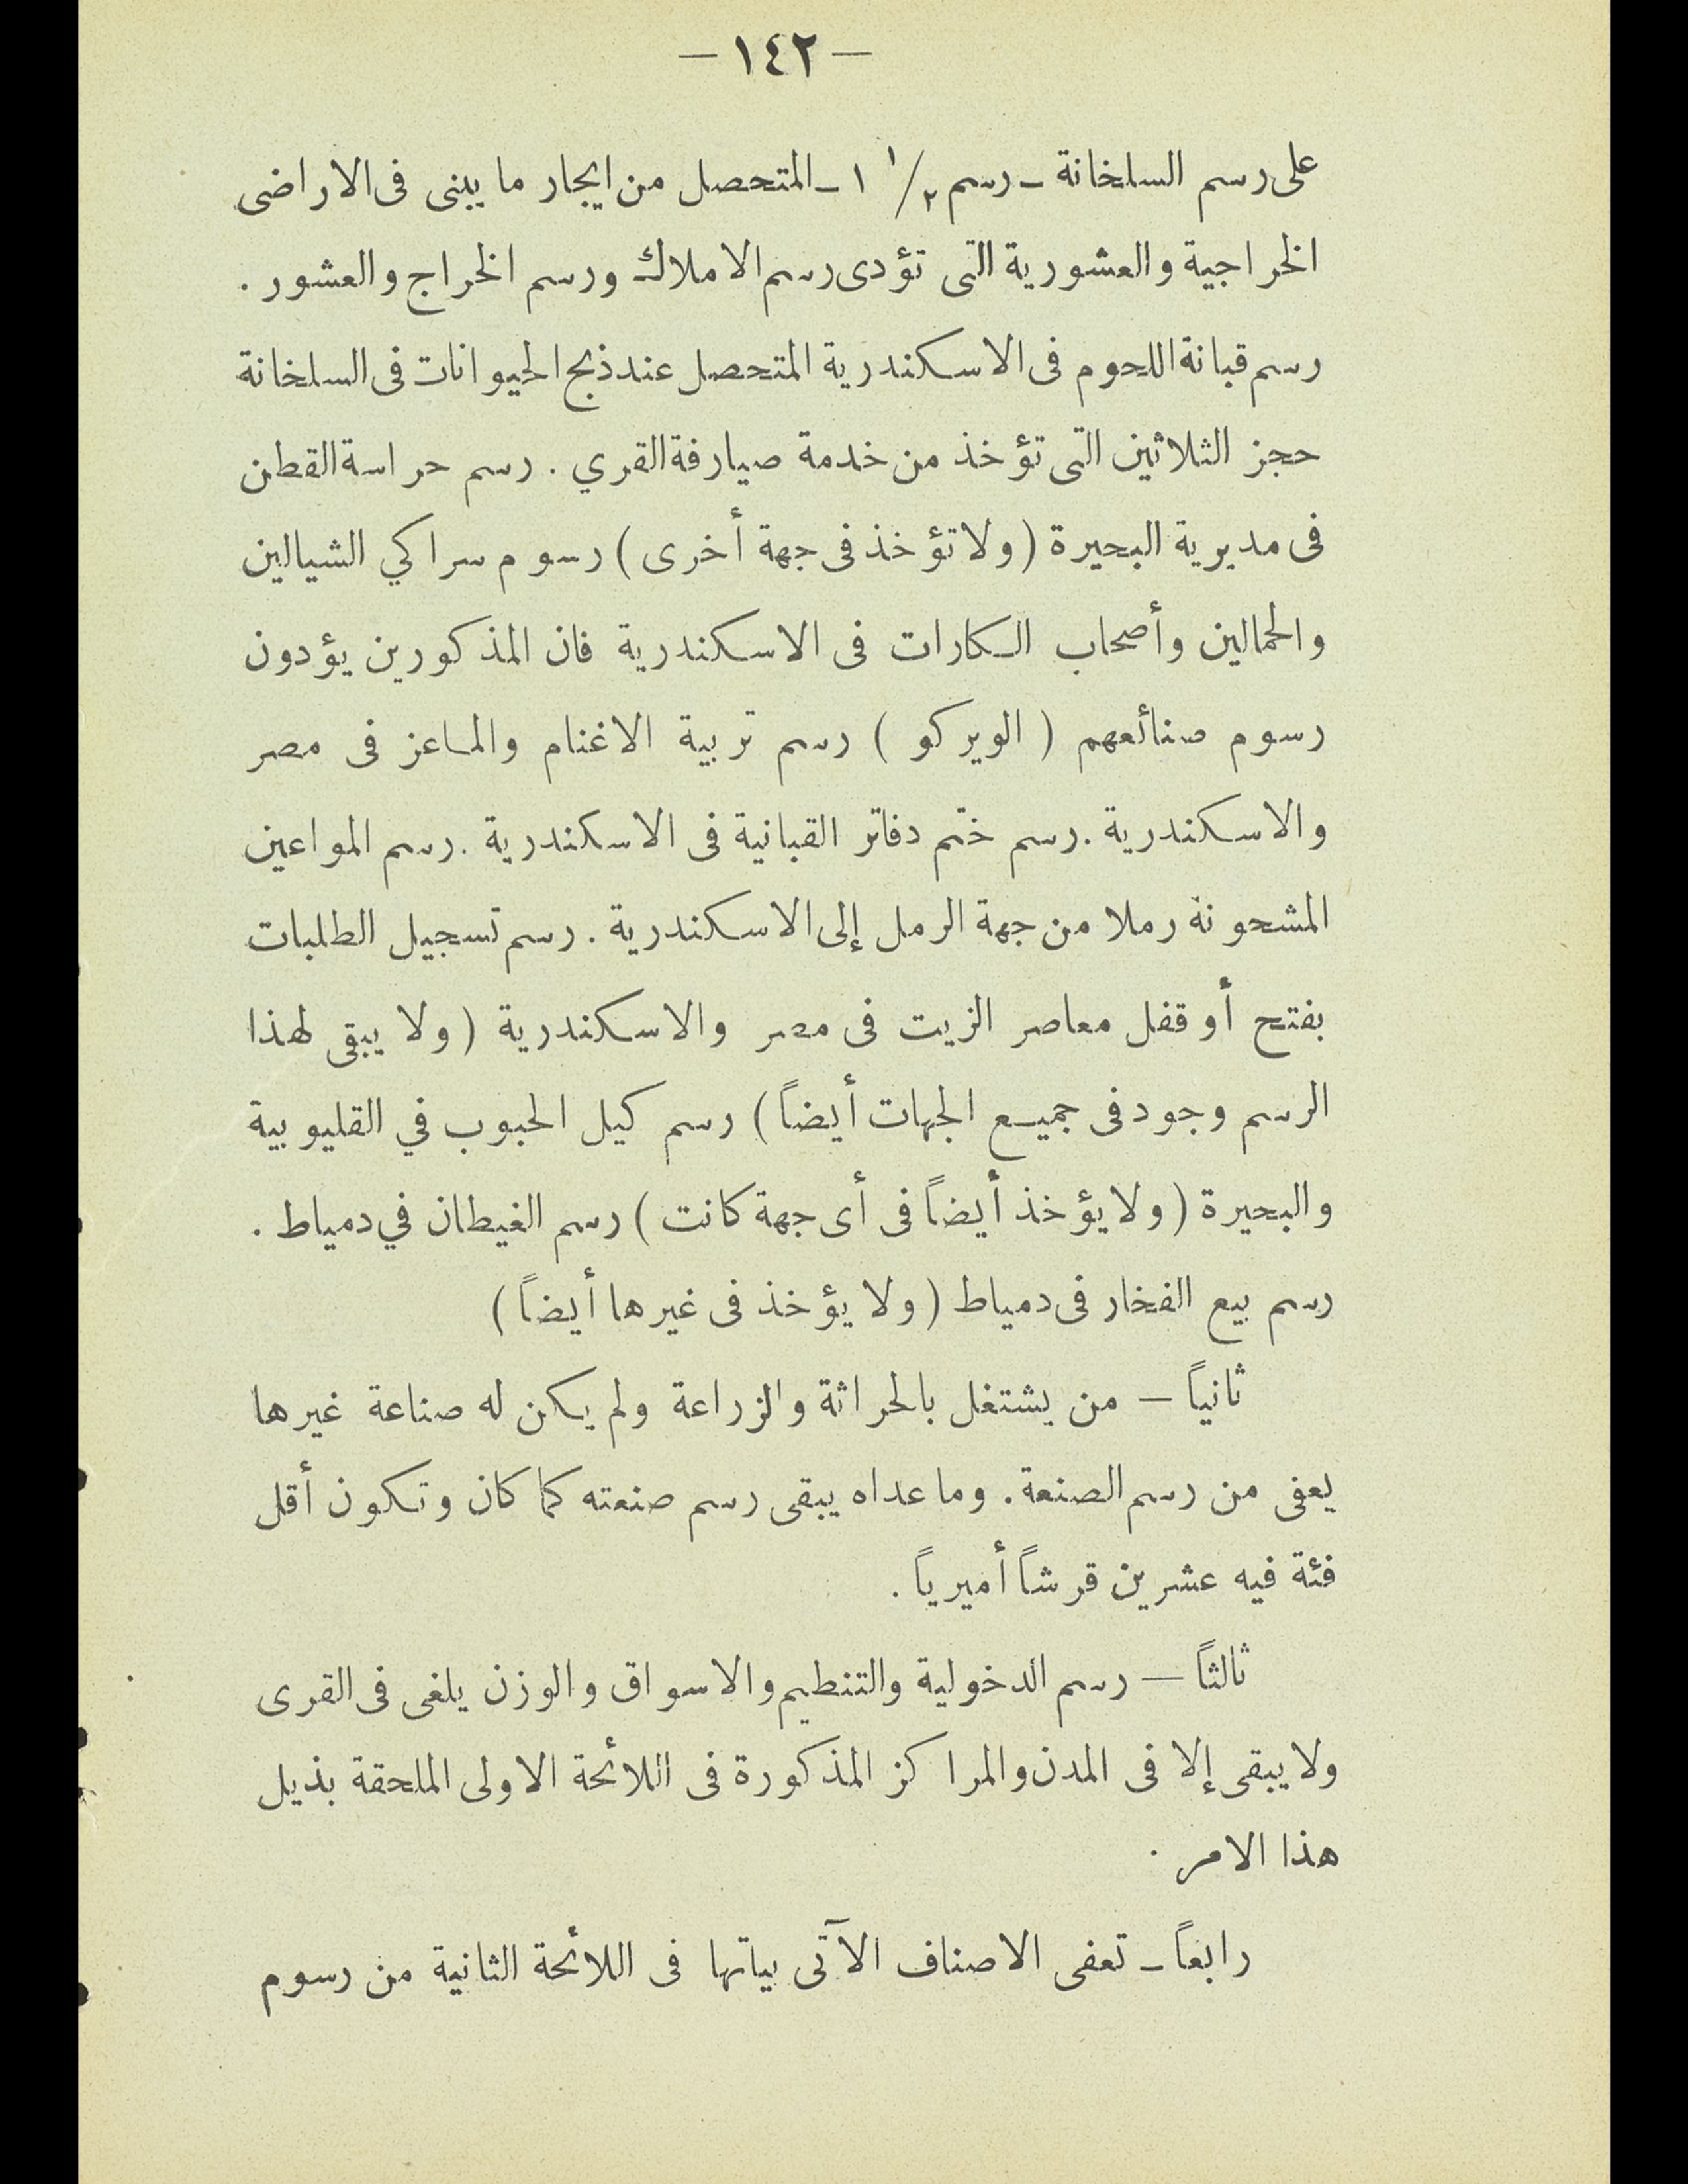 — ١٤٢ —
على رسم السلخانة ـ رسم ١/٢ ١ ـ المتحصل من ايجار ما يبنى فى الاراضى
الخراجية والعشورية التى تؤدى رسم الاملاك ورسم الخراج والعشور .
رسم قبانة اللحوم فى الاسكندرية المتحصل عند ذبح الحيوانات فى السلخانة
حجز الثلاثين التى تؤخذ من خدمة صيارفة القري . رسم حراسة القطن
فى مديرية البحيرة ( ولا تؤخذ فى جهة أخرى ) رسوم سراكي الشيالين
والحمالين وأصحاب الكارات فى الاسكندرية فان المذكورين يؤدون
رسوم صنائعهم ( الويركو ) رسم تربية الاغنام والماعز فى مصر
والاسكندرية . رسم ختم دفاتر القبانية فى الاسكندرية . رسم المواعين
المشحونة رملا من جهة الرمل إلى الاسكندرية . رسم تسجيل الطلبات
بفتح أو قفل معاصر الزيت فى مصر والاسكندرية ( ولا يبقى لهذا
الرسم وجود فى جميع الجهات أيضاً ) رسم كيل الحبوب في القليوبية
والبحيرة ( ولا يؤخذ أيضاً فى أى جهة كانت ) رسم الغيطان في دمياط .
رسم بيع الفخار فى دمياط ( ولا يؤخذ فى غيرها أيضاً )
ثانياً — من يشتغل بالحراثة والزراعة ولم يكن له صناعة غيرها
يعفى من رسم الصنعة . وما عداه يبقى رسم صنعته كما كان وتكون أقل
فئة فيه عشرين قرشاً أميرياً .
ثالثاً — رسم الدخولية والتنظيم والاسواق والوزن يلغى فى القرى
ولا يبقى إلا فى المدن والمراكز المذكورة فى اللائحة الاولى الملحقة بذيل
هذا الامر .
رابعاً ـ تعفى الاصناف الآتى بيانها فى اللائحة الثانية من رسوم